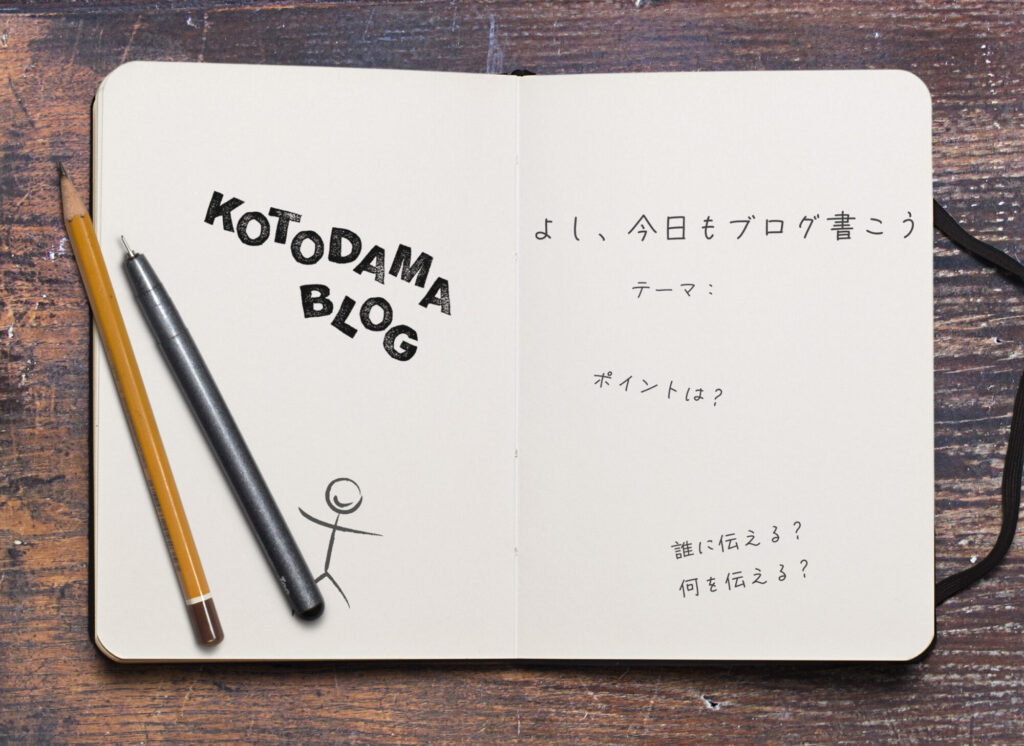 KOTODAMA
BLOG
よし、今日もブログ書こう
テーマ：
ポイントは？
誰に伝える？
何を伝える？